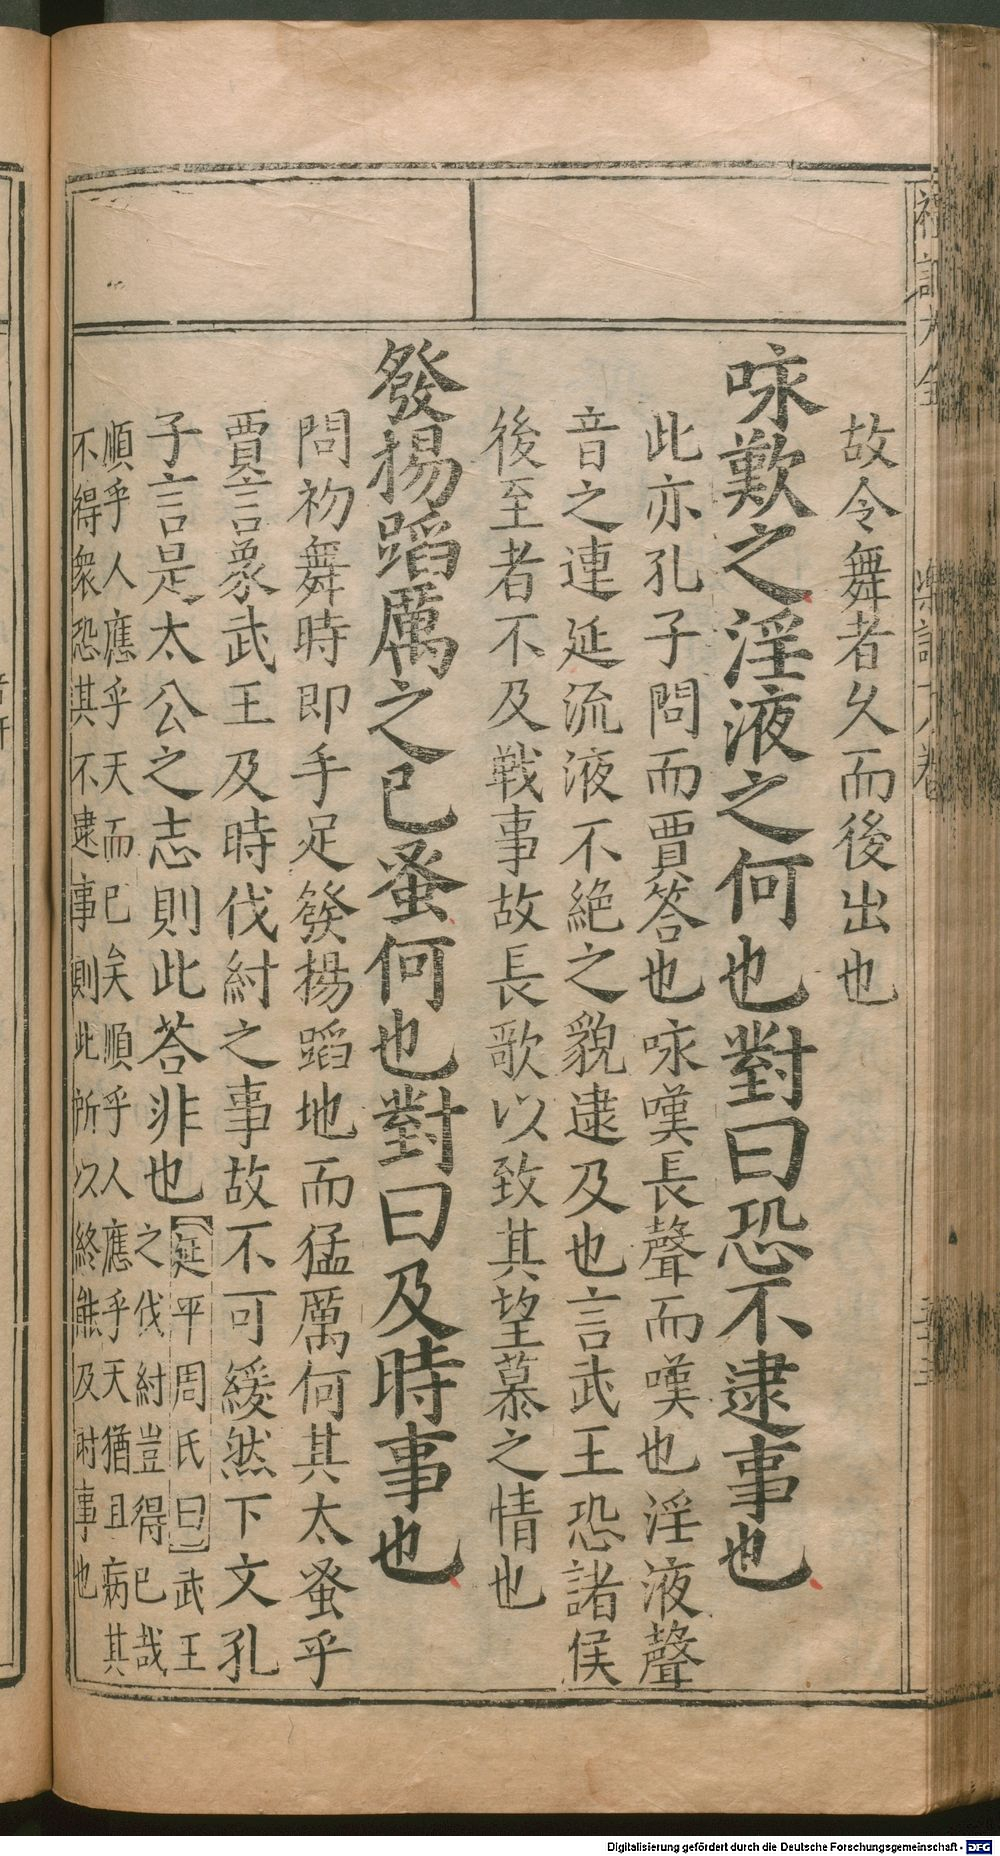 故令舞者久而後出也
咏歎之淫液之何也對曰恐不逮事也
此亦孔子問而賈答也咏嘆長聲而嘆也淫液聲
音之連延流液不絶之貌逮及也言武王恐諸侯
後至者不及戰事故長歌以致其望慕之情也
發揚蹈厲之已蚤何也對曰及時事也
問初舞時即手足發揚蹈地而猛厲何其太蚤乎
賈言象武王及時伐紂之事故不可緩然下文孔
子言是太公之志則此荅非也
延平周氏曰武王
之伐紂豈得已哉
順乎人應乎天而已矣順乎人應乎天猶且病其
不得衆恐其不逮事則此所以終能及時事也
Digitalisierung gefördert durch die Deutsche Forschungsgemeinschaft - DFG